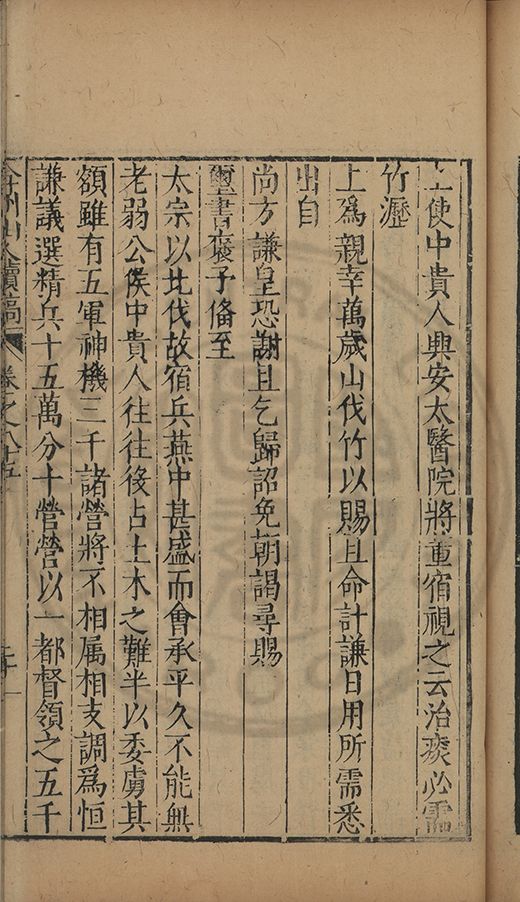 上使中貴人興安太醫院將董宿視之云治痰必需
竹瀝
上爲親幸萬歲山伐竹以賜且命計謙日用所需悉
出自
尚方謙皇恐謝且乞歸詔免朝謁尋賜
璽書褒予備至
太宗以北伐故宿兵燕中甚盛而會承平久不能無
老弱公侯中貴人往往役占土木之難半以委虜其
額雖有五軍神機三千諸營將不相属相支調爲恒
謙議選精兵十五萬分十營營以一都督領之五千
弇州山人續稿 卷之八十五